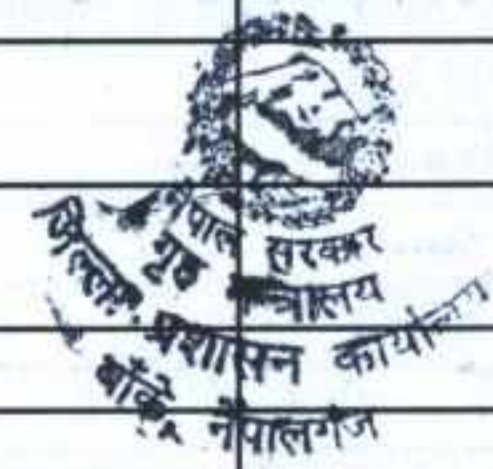 नेपाल सरकार
गृह मन्त्रालय
जिल्ला प्रशासन कार्यालय
बाँके, नेपालगंज